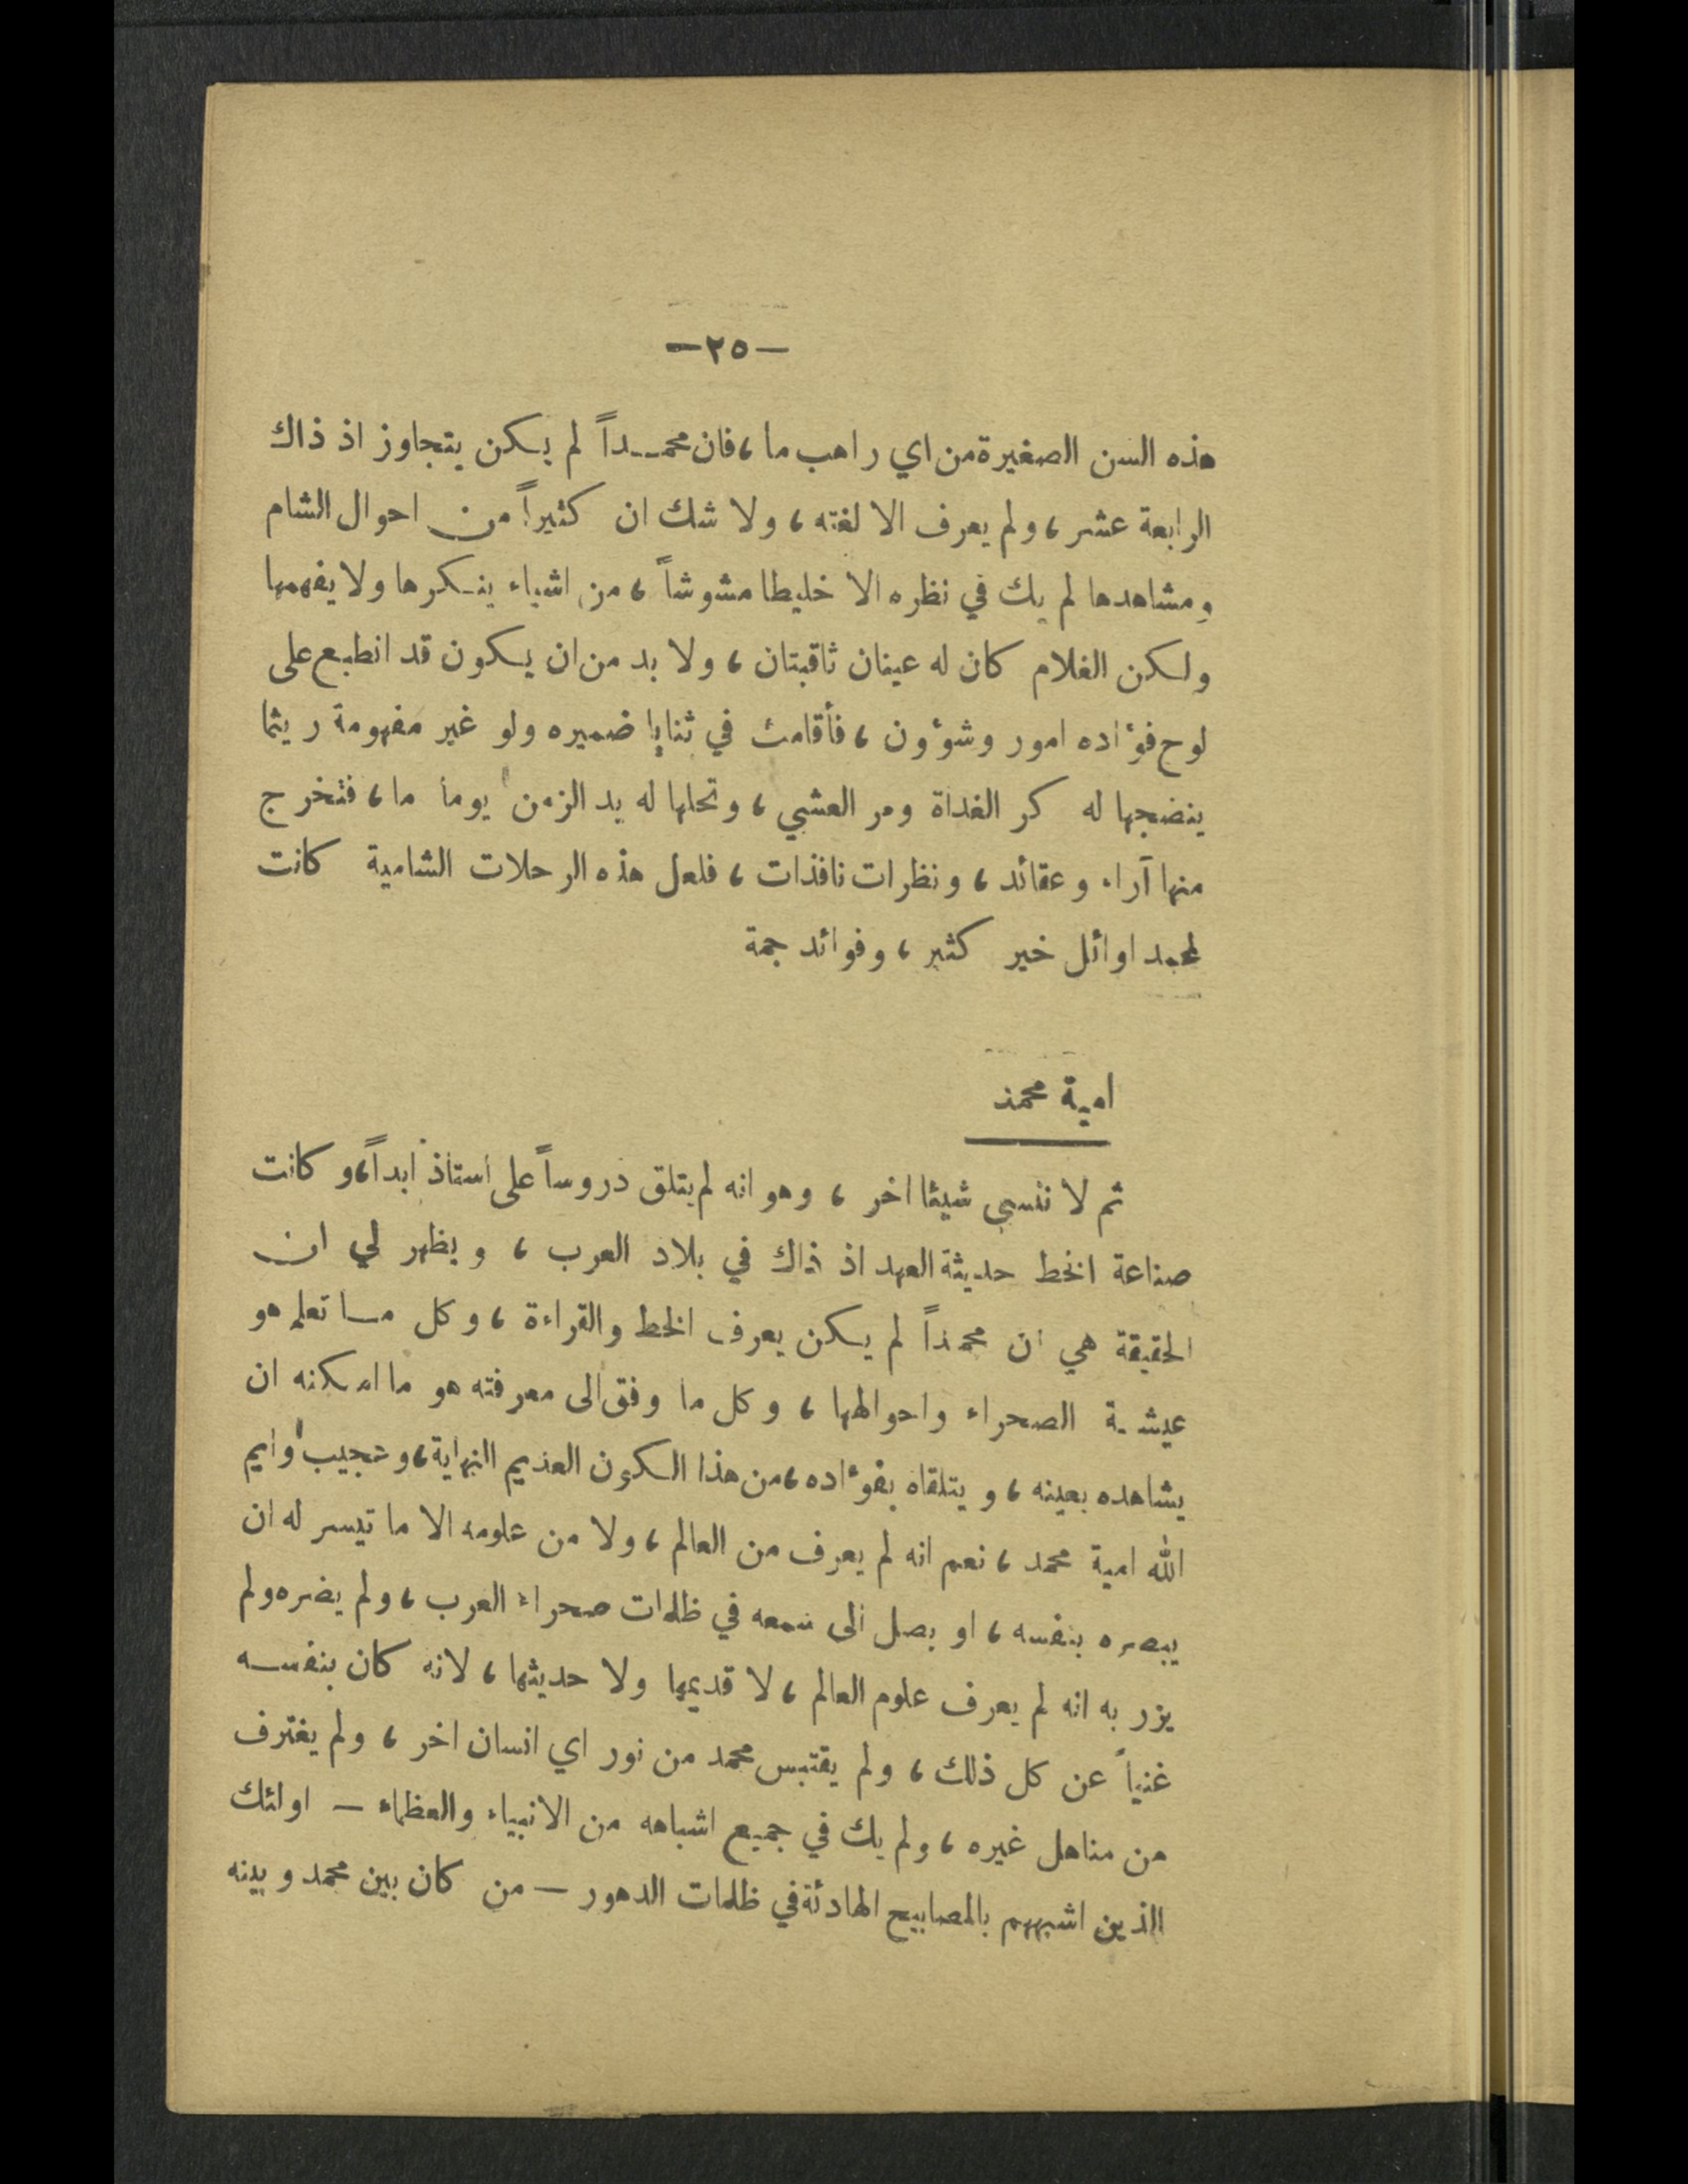 —٢٥—
هذه السن الصغيرة من اي راهب ما، فان محمداً لم يكن يتجاوز اذ ذاك
الرابعة عشر، ولم يعرف الا لغته، ولا شك ان كثيراً من احوال الشام
ومشاهدها لم يك في نظره الا خليطا مشوشاً، من اشياء ينكرها ولا يفهمها
ولكن الغلام كان له عينان ثاقبتان، ولا بد من ان يكون قد انطبع على
لوح فؤاده امور وشؤون، فأقامت في ثنايا ضميره ولو غير مفهومة ريثما
ينضجها له كر الغداة ومر العشي، وتحلها له يد الزمن يوما ما، فتخرج
منها آراء وعقائد، ونظرات نافذات، فلعل هذه الرحلات الشامية كانت
لمحمد اوائل خير كثير، وفوائد جمة
امية محمد
ثم لا ننسى شيئا اخر، وهو انه لم يتلق دروساً على استاذ ابداً، وكانت
صناعة الخط حديثة العهد اذ ذاك في بلاد العرب، ويظهر لي ان
الحقيقة هي ان محمداً لم يكن يعرف الخط والقراءة، وكل ما تعلم هو
عيشة الصحراء واحوالها، وكل ما وفق الى معرفته هو ما امكنه ان
يشاهده بعينه، ويتلقاه بفؤاده، من هذا الكون العديم النهاية، وعجيب وايم
الله امية محمد، نعم انه لم يعرف من العالم، ولا من علومه الا ما تيسر له ان
يبصره بنفسه، او يصل الى سمعه في ظلمات صحراء العرب، ولم يضره ولم
يزر به انه لم يعرف علوم العالم، لا قديمها ولا حديثها، لانه كان بنفسه
غنياً عن كل ذلك، ولم يقتبس محمد من نور اي انسان اخر، ولم يغترف
من مناهل غيره، ولم يك في جميع اشباهه من الانبياء والعظماء — اولئك
الذين اشبههم بالمصابيح الهادئة في ظلمات الدهور — من كان بين محمد وبينه